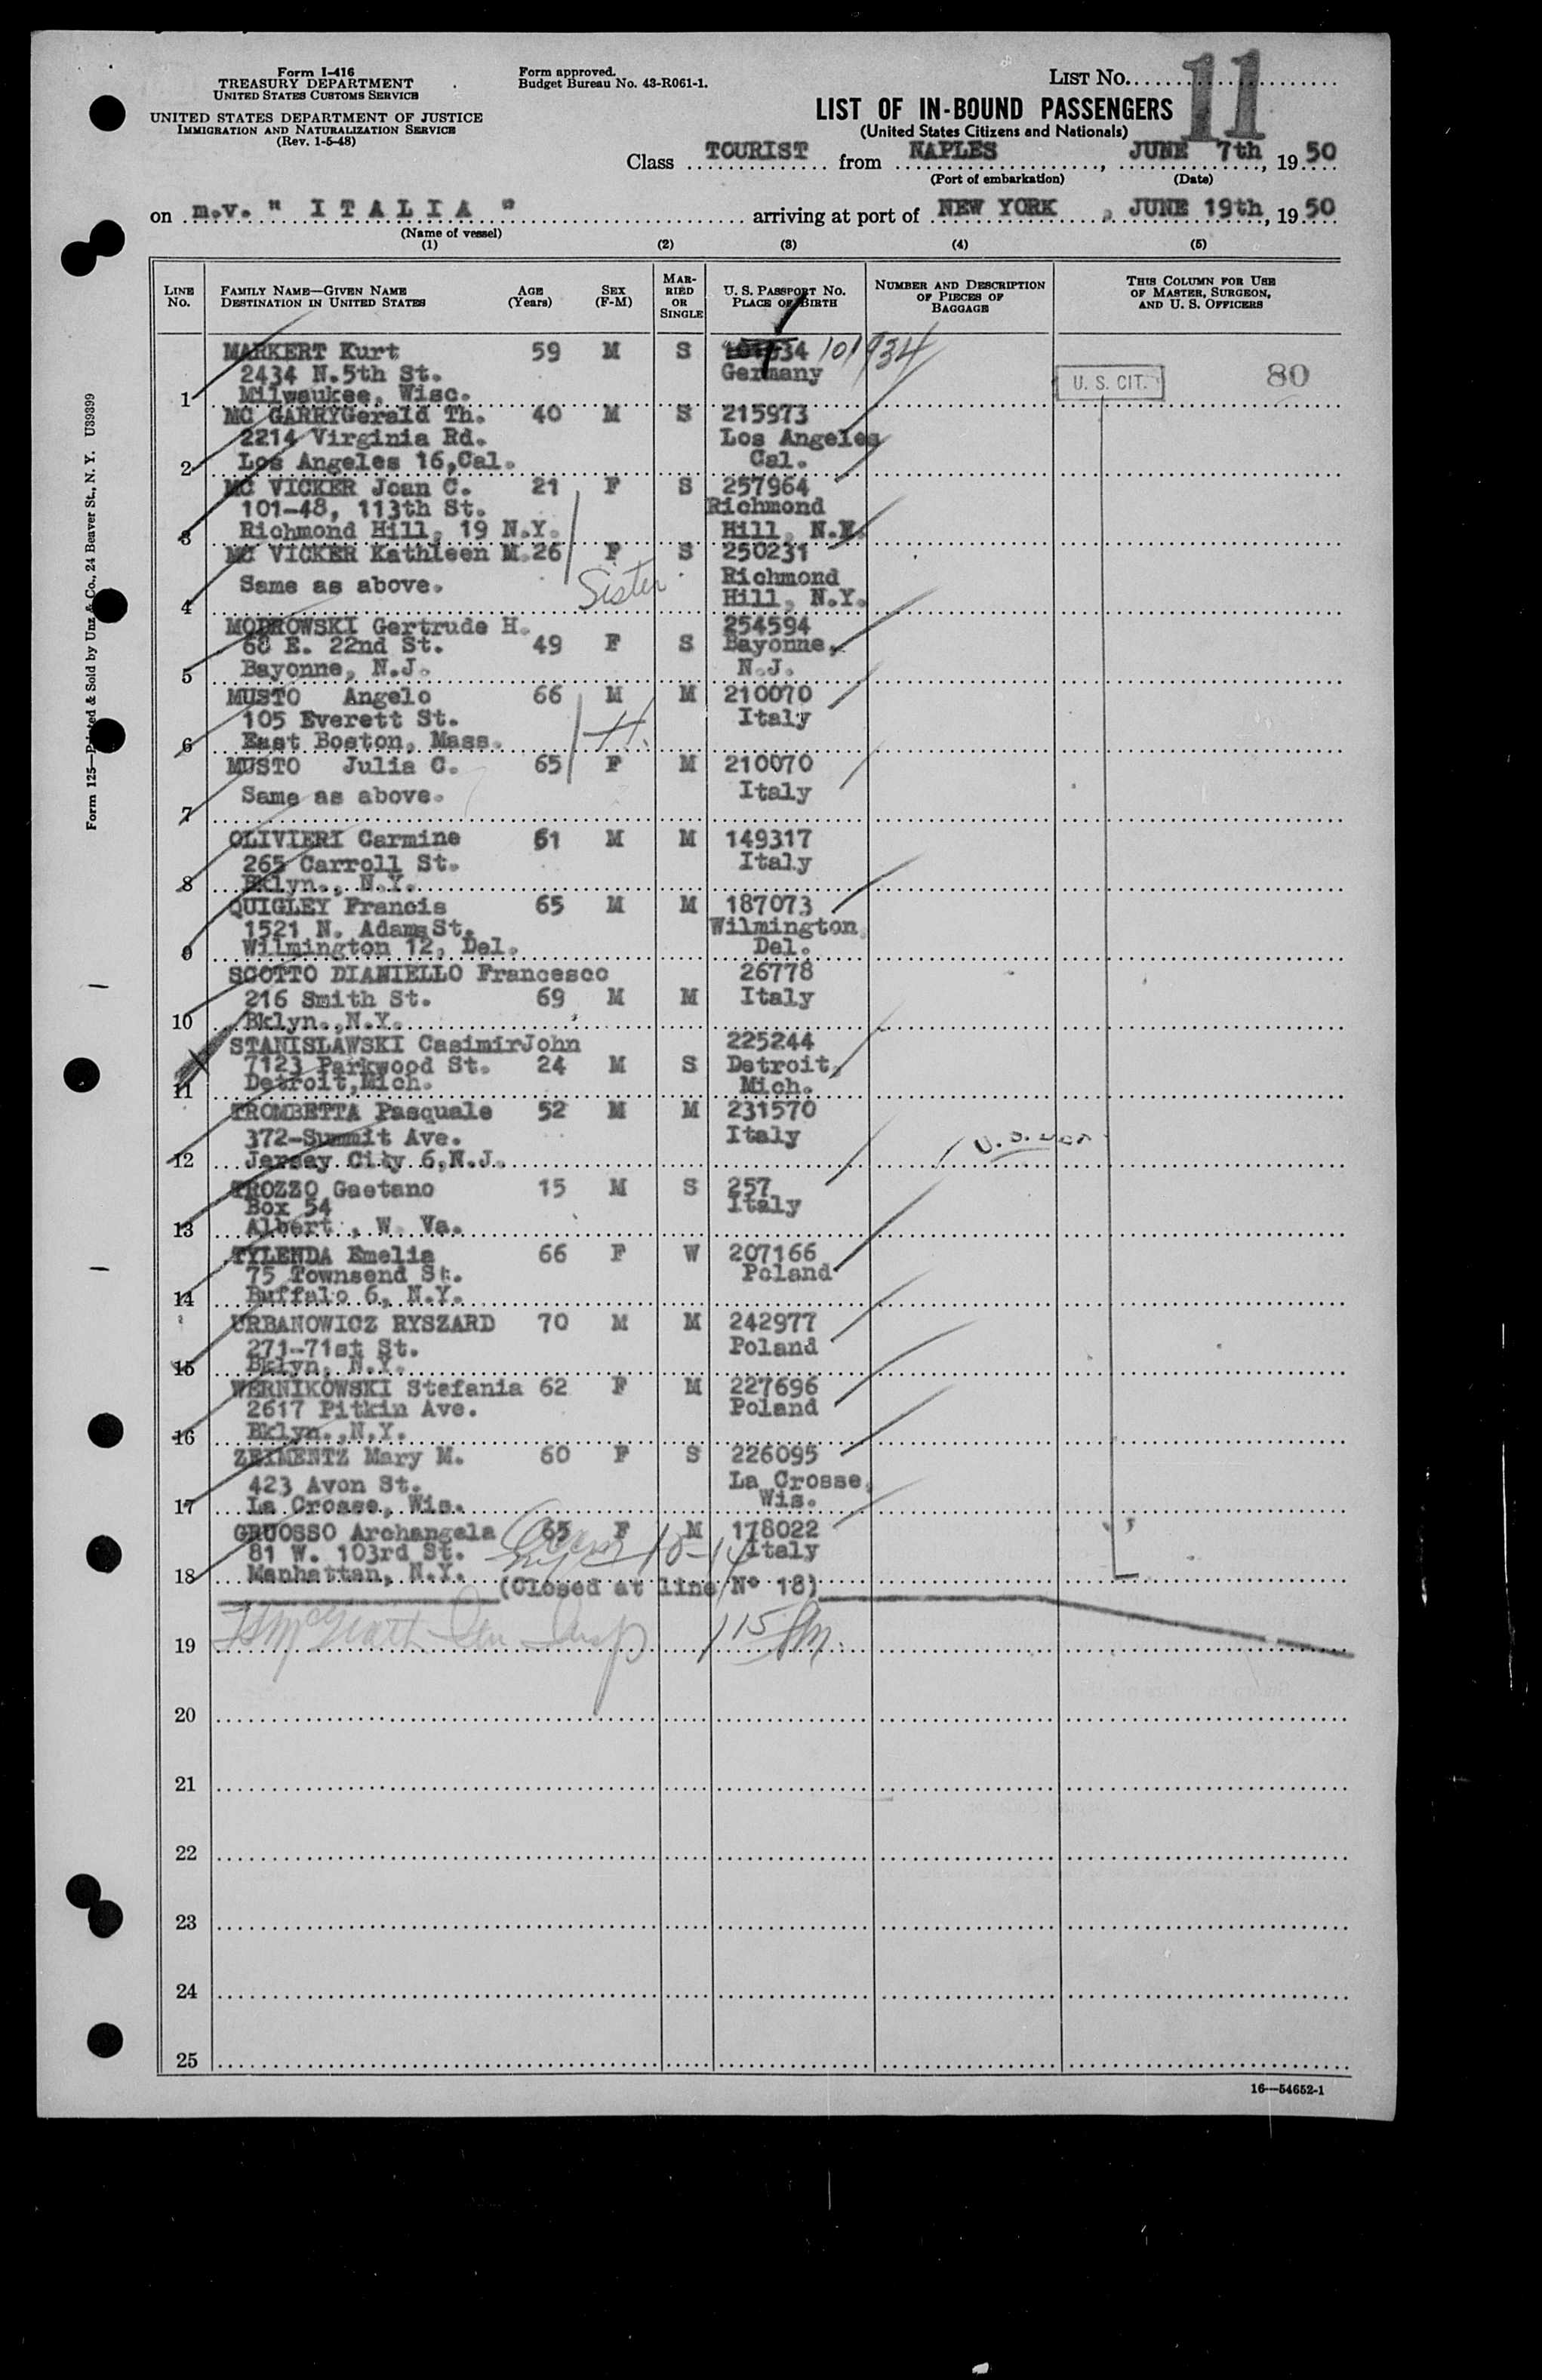 Form I-416
TREASURY DEPARTMENT
UNITED STATES CUSTOMS SERVICE
UNITED STATES DEPARTMENT OF JUSTICE
IMMIGRATION AND NATURALIZATION SERVICE
(Rev. 1-5-48)
Form approved.
Budget Bureau No. 43-R061-1.
LIST No. 11
LIST OF IN-BOUND PASSENGERS
(United States Citizens and Nationals)
Class TOURIST from NAPLES, JUNE 7th, 1950
(Port of embarkation) (Date)
on m.v. " I T A L I A " arriving at port of NEW YORK, JUNE 19th, 1950
(Name of vessel)
(1) (2) (3) (4) (5)
LINE No. FAMILY NAME—GIVEN NAME DESTINATION IN UNITED STATES AGE (Years) SEX (F-M) MARRIED OR SINGLE U. S. PASSPORT No. PLACE OF BIRTH NUMBER AND DESCRIPTION OF PIECES OF BAGGAGE THIS COLUMN FOR USE OF MASTER, SURGEON, AND U. S. OFFICERS
MARKERT Kurt 59 M S 101934
2434 N.5th St. Germany U. S. CIT. 80
1 Milwaukee, Wisc.
MC GARRYGerald Th. 40 M S 215973
2214 Virginia Rd. Los Angeles
2 Los Angeles 16,Cal. Cal.
MC VICKER Joan C. 21 F S 257964
101-48, 113th St. Richmond
3 Richmond Hill, 19 N.Y. Hill, N.Y.
MC VICKER Kathleen M.26 F S 250231
Same as above. Sister Richmond
4 Hill, N.Y.
MODROWSKI Gertrude H. 254594
68 E. 22nd St. 49 F S Bayonne,
5 Bayonne, N.J. N.J.
MUSTO Angelo 66 M M 210070
105 Everett St. H. Italy
6 East Boston, Mass.
MUSTO Julia C. 65 F M 210070
Same as above. Italy
7
OLIVIERI Carmine 61 M M 149317
265 Carroll St. Italy
8 Bklyn., N.Y.
QUIGLEY Francis 65 M M 187073
1521 N. Adams St. Wilmington,
9 Wilmington 12, Del. Del.
SCOTTO DIANIELLO Francesco 26778
216 Smith St. 69 M M Italy
10 Bklyn.,N.Y.
STANISLAWSKI CasimirJohn 225244
7123 Parkwood St. 24 M S Detroit,
11 Detroit,Mich. Mich.
TROMBETTA Pasquale 52 M M 231570
372-Summit Ave. Italy
12 Jersey City 6,N.J.
TROZZO Gaetano 15 M S 257
Box 54 Italy
13 Albert , W. Va.
TYLENDA Emelia 66 F W 207166
75 Townsend St. Poland
14 Buffalo 6, N.Y.
URBANOWICZ RYSZARD 70 M M 242977
271-71st St. Poland
15 Bklyn, N.Y.
WERNIKOWSKI Stefania 62 F M 227696
2617 Pitkin Ave. Poland
16 Bklyn.,N.Y.
ZEIMENTZ Mary M. 60 F S 226095
423 Avon St. La Crosse,
17 La Crosse, Wis. Wis.
GRUOSSO Archangela 65 F M 178022
81 W. 103rd St. Italy
18 Manhattan, N.Y.
(Closed at line N° 18)
19
20
21
22
23
24
25
16—54652-1
Form 125—Printed & Sold by Unz & Co., 24 Beaver St., N. Y. U39399